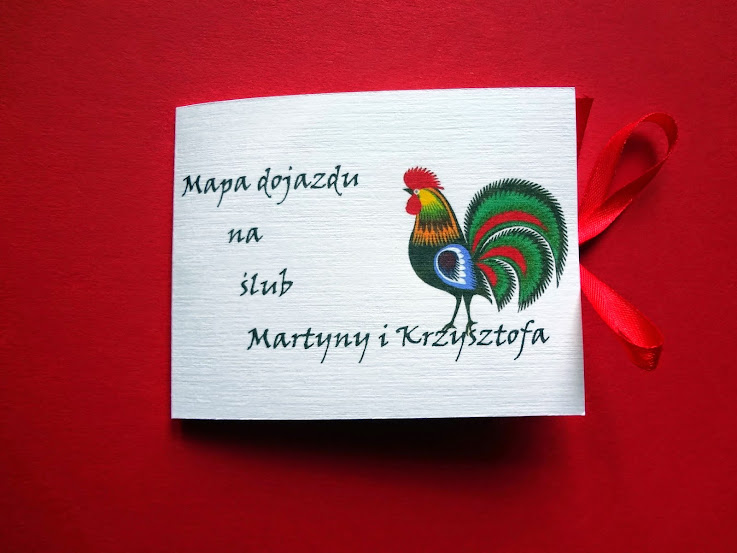 Mapa dojazdu
na
ślub
Martyny i Krzysztofa